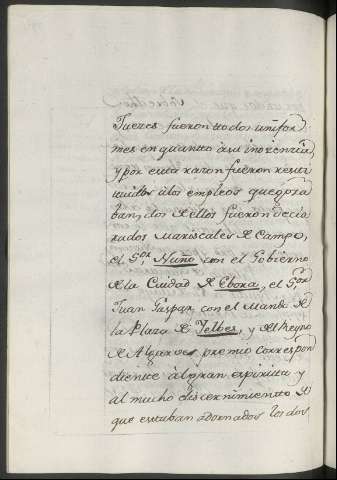 Jueces fueron todos unifor
mes en quanto à su inozencia,
y por esta razon fueron resti
tuidos à los empleos que goza
ban, dos de ellos fueron decla
rados Mariscales de Campo,
el S.or Nuño con el Gobierno
de la Ciudad de Ebora, el S.or
Juan Gaspar con el Mando de
la Plaza de Yelbes, y del Reyno
de Algarves, premio correspon
diente àl gran espiritu y
al mucho discernimiento de
que estaban adornados los dos